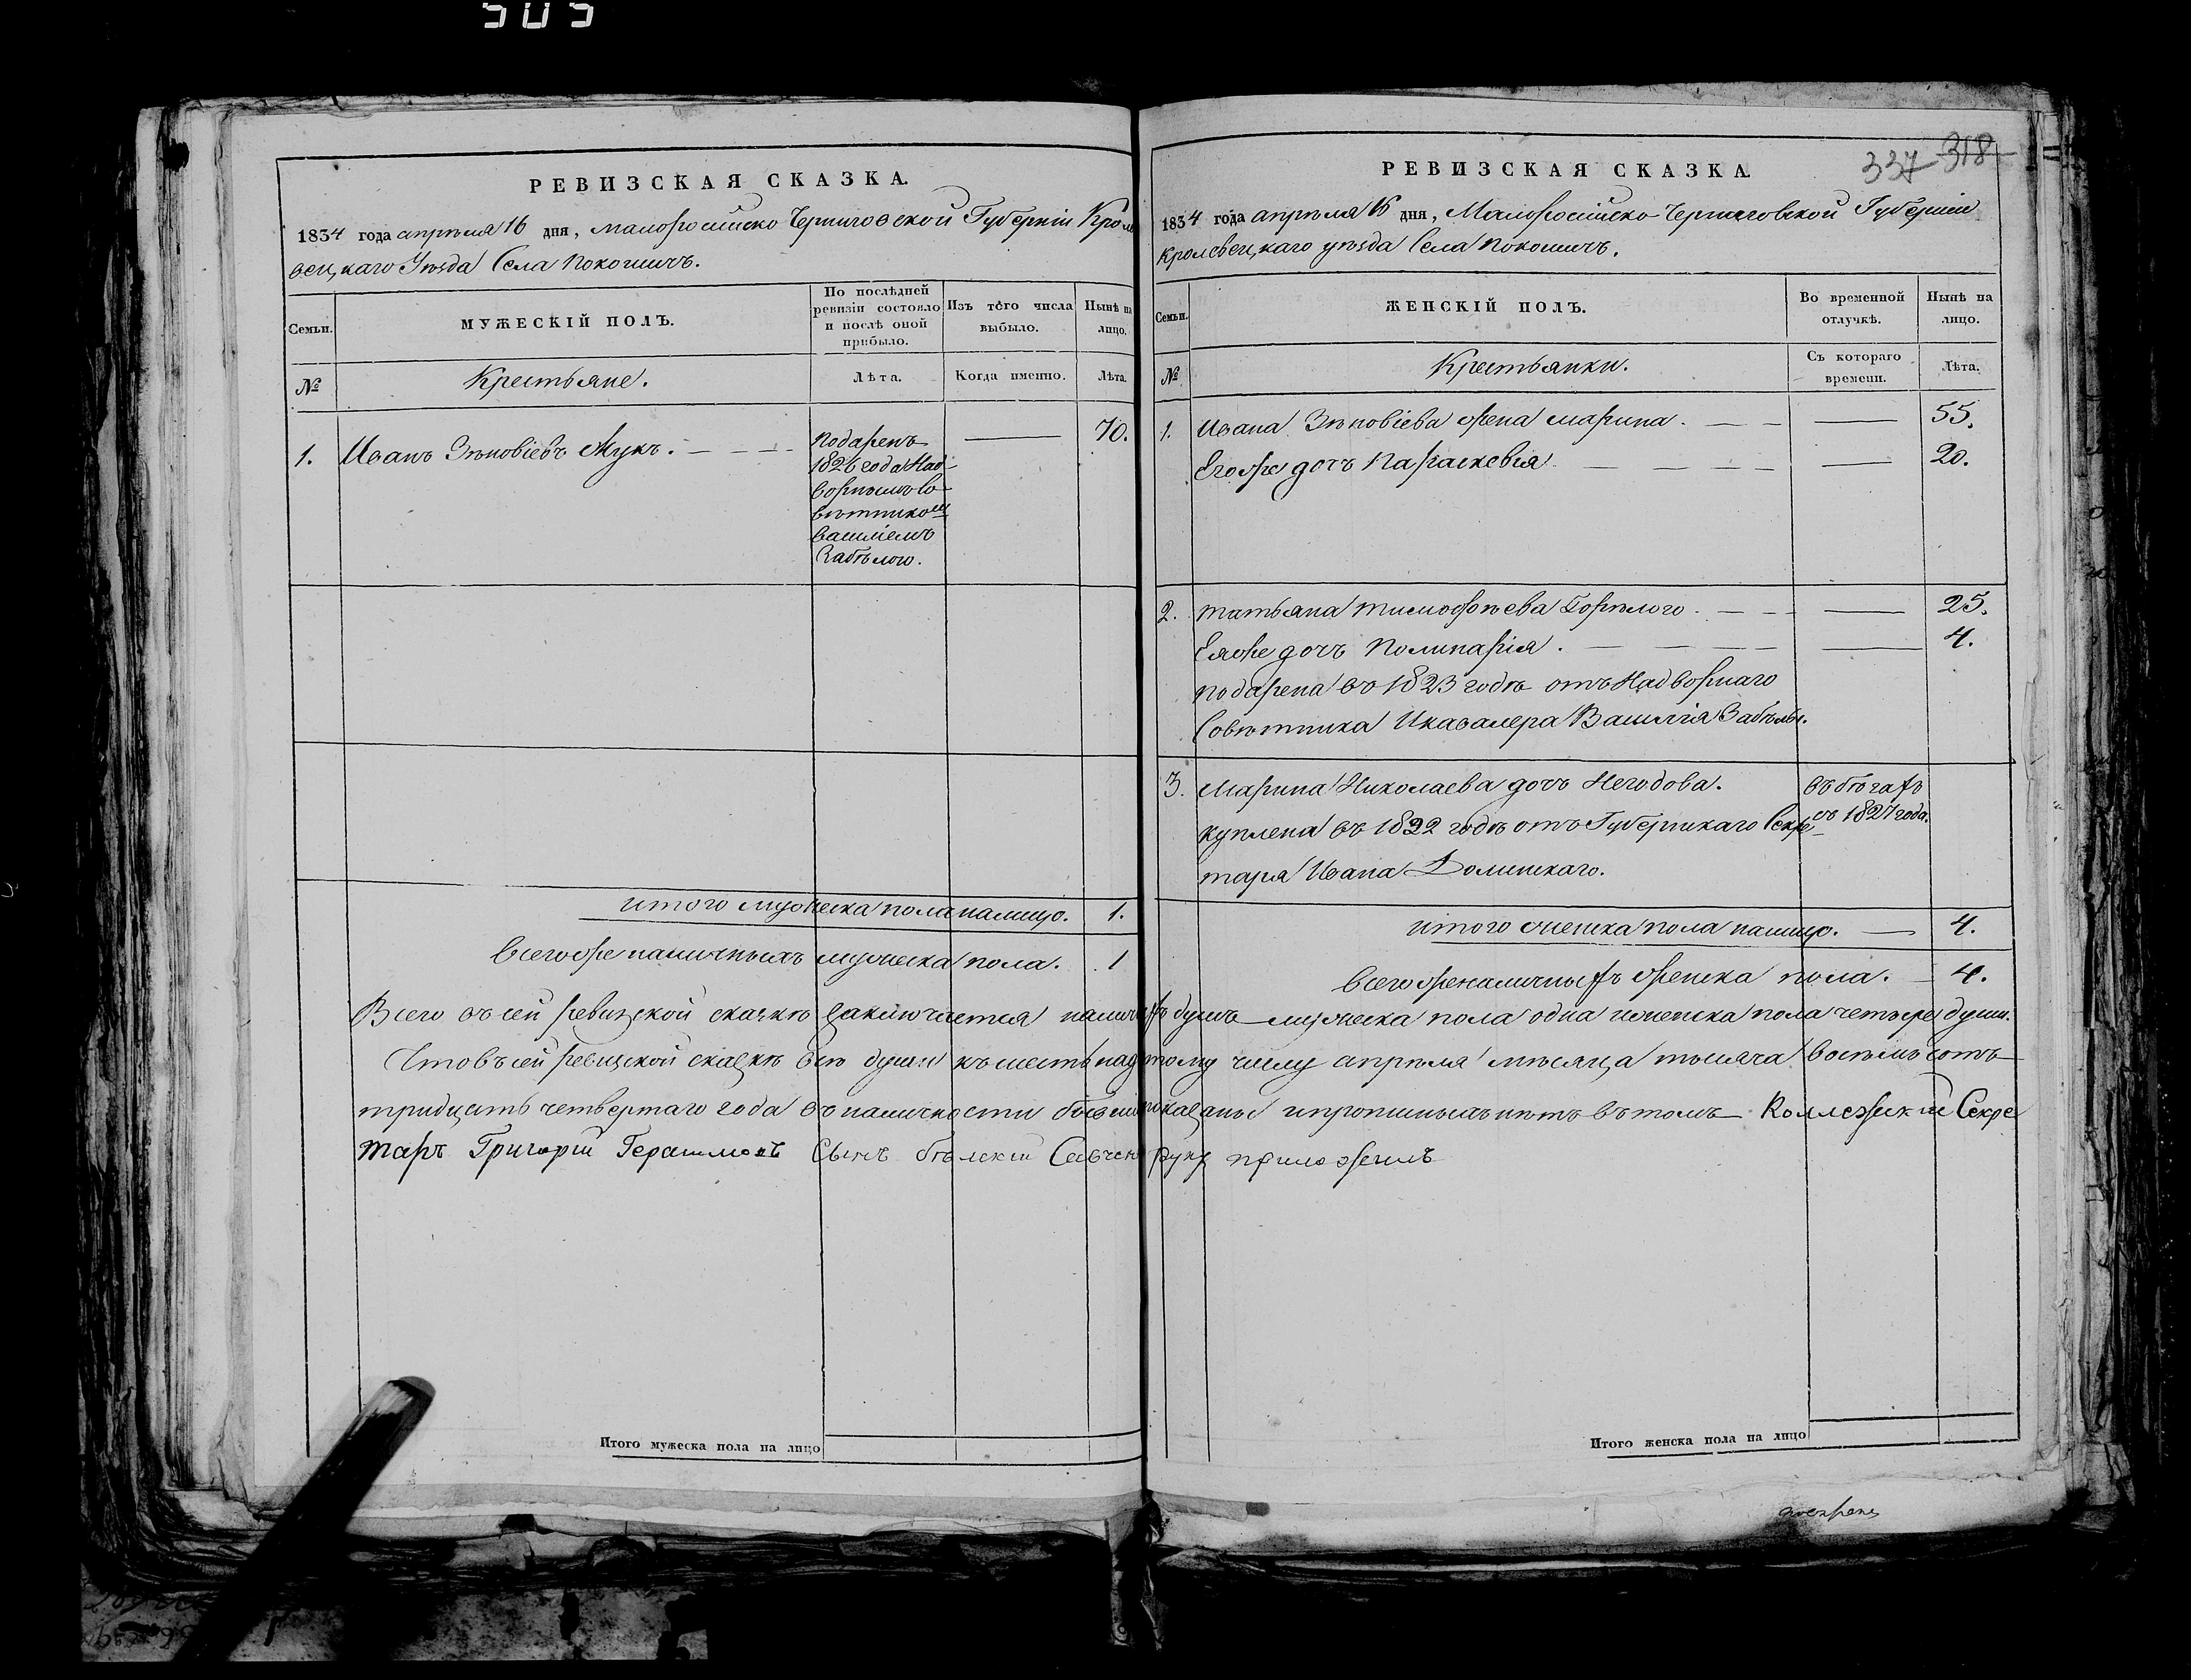 505
РЕВИЗСКАЯ СКАЗКА.
1834 года апреля 16 дня, Малоросійско Черниговской Губерніи Кроле
вецкаго Уѣзда Села Покошичъ.
Семьи.
МУЖЕСКІЙ ПОЛЪ.
По послѣдней ревизіи состояло и послѣ оной прибыло.
Изъ того числа выбыло.
Нынѣ на лицо.
№
Крестьяне.
Лѣта.
Когда именно.
Лѣта.
1. Иванъ Зѣновіевъ Мукъ.
Подаренъ
1826 года Над-
ворнымъ Со-
вѣтником
Василіемъ
Забѣлою.
70.
итого мужеска пола налицо. 1.
Всегоже наличныхъ мужеска пола. 1
337 318
РЕВИЗСКАЯ СКАЗКА.
1834 года апрѣля 16 дня, Малоросійско Черниговской Губерніи
Кролевецкаго уѣзда Села Покошичъ.
Семьи.
ЖЕНСКІЙ ПОЛЪ.
Во временной отлучкѣ.
Нынѣ на лицо.
№
Крестьянки.
Съ котораго времени.
Лѣта.
1. Ивана Зѣновіева жена Марина. 55.
Егоже дочъ Параскевія 20.
2. Татьяна Тимофѣева Горѣлого. 25.
Еяже дочъ Поликарія. 4.
подарена въ 1823 годѣ отъ Надворнаго
Совѣтника Икавалера Василія Забѣлы.
3. Марина Николаева дочъ Негодова. въ бѣгахъ
куплена въ 1822 годѣ отъ Губернскаго Секре съ 1827 года.
таря Ивана Долинскаго.
итого женска пола налицо. 4.
Всегоже наличныхъ женска пола. 4.
Всего въ сей ревизской сказкѣ заключается наличныхъ душъ мужеска пола одна иженска пола четыре души.
Что въ сей ревизской сказкѣ всѣ души къ шестьнадцатому числу апрѣля мѣсяца тысяча восѣмъсотъ
тридцать четвертаго года въ наличности бывши показаны ипрописныхъ нѣтъ въ томъ Коллежскій Секре
таръ Григорій Герасимовъ Сынъ Савченко руку приложилъ
Итого мужеска пола на лицо
Итого женска пола на лицо